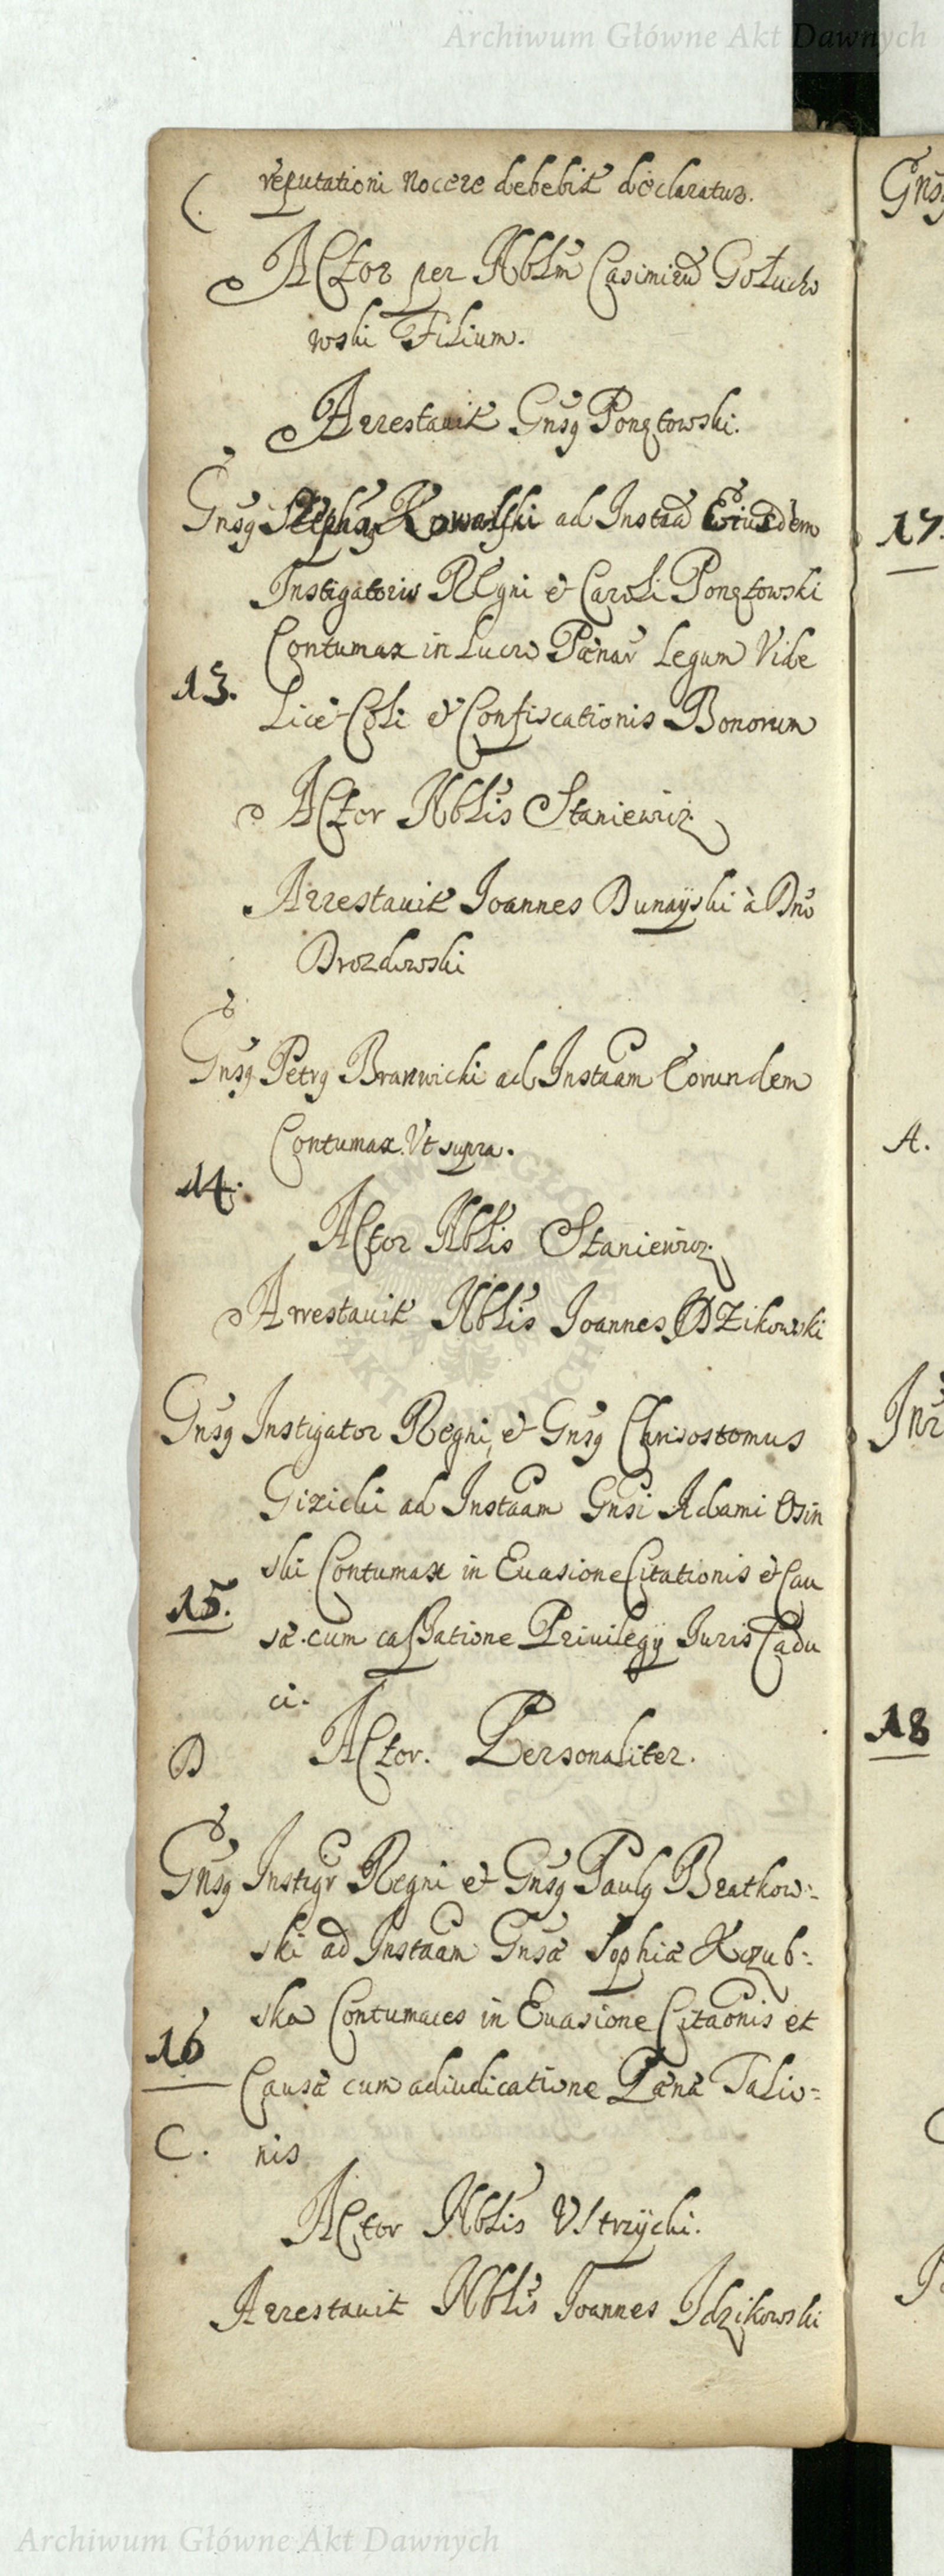 Archiwum Główne Akt Dawnych
reputationi nocere debebit declaratus.
Actor per Nblm Casimirū Gołucho
wski Filium.
Arrestauit Gnsg Ponętowski.
Gnsg Stephag Kowalski ad Instāā Eiusdem
Instigatoris Regni & Caroli Ponętowski
Contumax in Lucro Pœnar Legum Vide
13.
Licet Coli & Confiscationis Bonorum
Actor Nblis Staniewicz
Arrestauit Joannes Dunayski à Dno
Drozdowski
Gnsg Petrg Branwicki ad Instaam Eorundem
Contumax Vt supra.
14.
Actor Nblis Staniewicz
Arrestauit Nblis Joannes Dzikowski
Gnsg Instigator Regni & Gnsg Chrisostomus
Gizicki ad Instaam Gnsi Adami Osin
ski Contumax in Euasione Citationis & Cau
15.
sæ cum cassatione Priuilegÿ Juris Cadu
ci.
D Actor. Personaliter.
Gnsg Instigr Regni & Gnsg Paulg Bratkow:
ski ad Instaam Gnsæ Sophiæ Kczub:
ska Contumaces in Euasione Citaonis et
16
Causæ cum adiudicatione Pænæ Talio=
C. nis
Actor Nblis Vstrzÿcki.
Arrestauit Nblis Joannes Idzikowski
Gnsg
17.
A.
18
Archiwum Główne Akt Dawnych